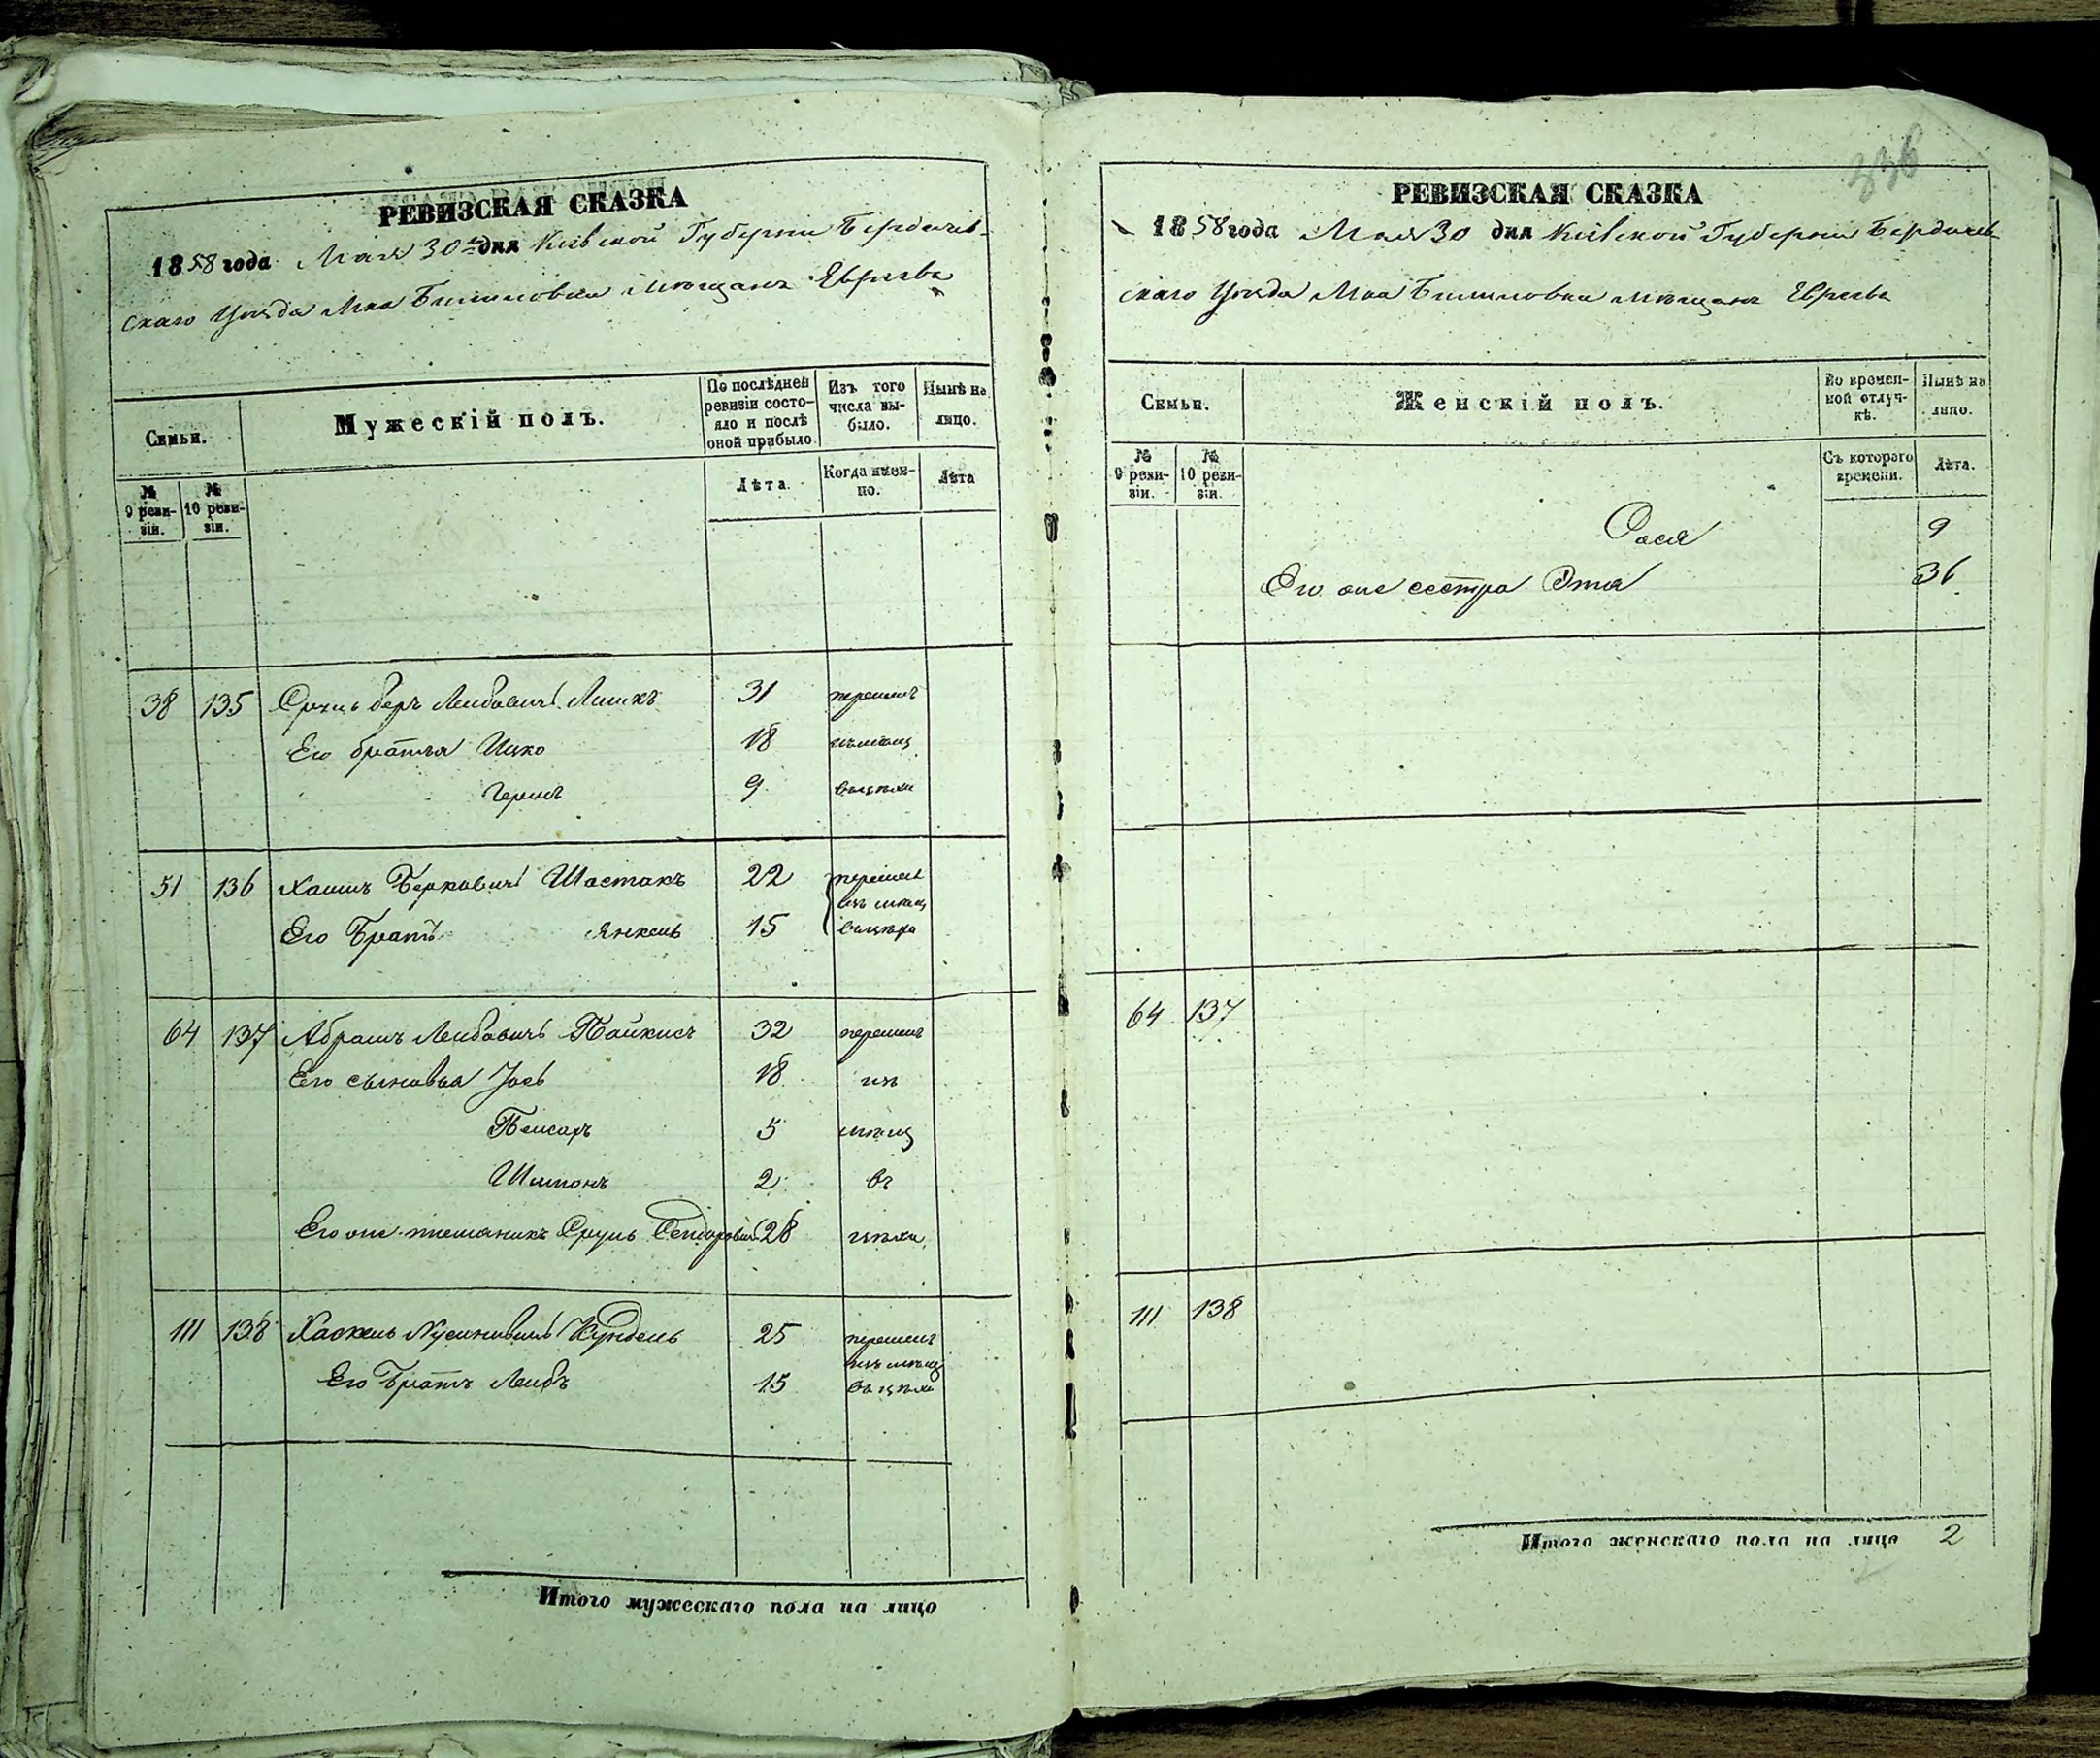 РЕВИЗСКАЯ СКАЗКА
1858 года Мая 30 дня Кіевской Губерніи Бердичев-
скаго Уѣзда Мка Билиловки мѣщанъ Евреевъ
Семьи.
Мужескій полъ.
По послѣдней ревизіи состо-
яло и послѣ оной прибыло.
Изъ того числа вы-
было.
Нынѣ на лицо.
№ 9 реви-
зіи.
№ 10 реви-
зіи.
Лѣта.
Когда имен-
но.
Лѣта
38 135 Срульберъ Лейбовичъ 31 перешли
Его братья Ицко 18 изъ мѣщ
Гершъ 9 въ цѣхи
51 136 Хаимъ Берковичъ Шостакъ 22 перешли
изъ мѣщ
Его Братъ Янкель 15 въ цѣхи
64 137 Абрамъ Лейбовичъ Пайкисъ 32 перешли
Его сыновья Іось 18 изъ
Пейсахъ 5 мѣщ
Шимонъ 2 въ
Его же племянникъ Сруль 28 цѣхи
111 138 Хаскель Кундель 25 перешли
изъ мѣщ
Его Братъ Лейбъ 15 въ цѣхи
Итого мужескаго пола на лицо
336
РЕВИЗСКАЯ СКАЗКА
1858 года Мая 30 дня Кіевской Губерніи Бердичев-
скаго Уѣзда Мка Билиловки мѣщанъ Евреевъ
Семьи.
Женскій полъ.
Во времен-
ной отлуч-
кѣ.
Нынѣ на
лицо.
№ 9 реви-
зіи.
№ 10 реви-
зіи.
Съ котораго времени.
Лѣта.
Рася 9
Его же сестра Этя 36
64 137
111 138
Итого женскаго пола на лицо 2